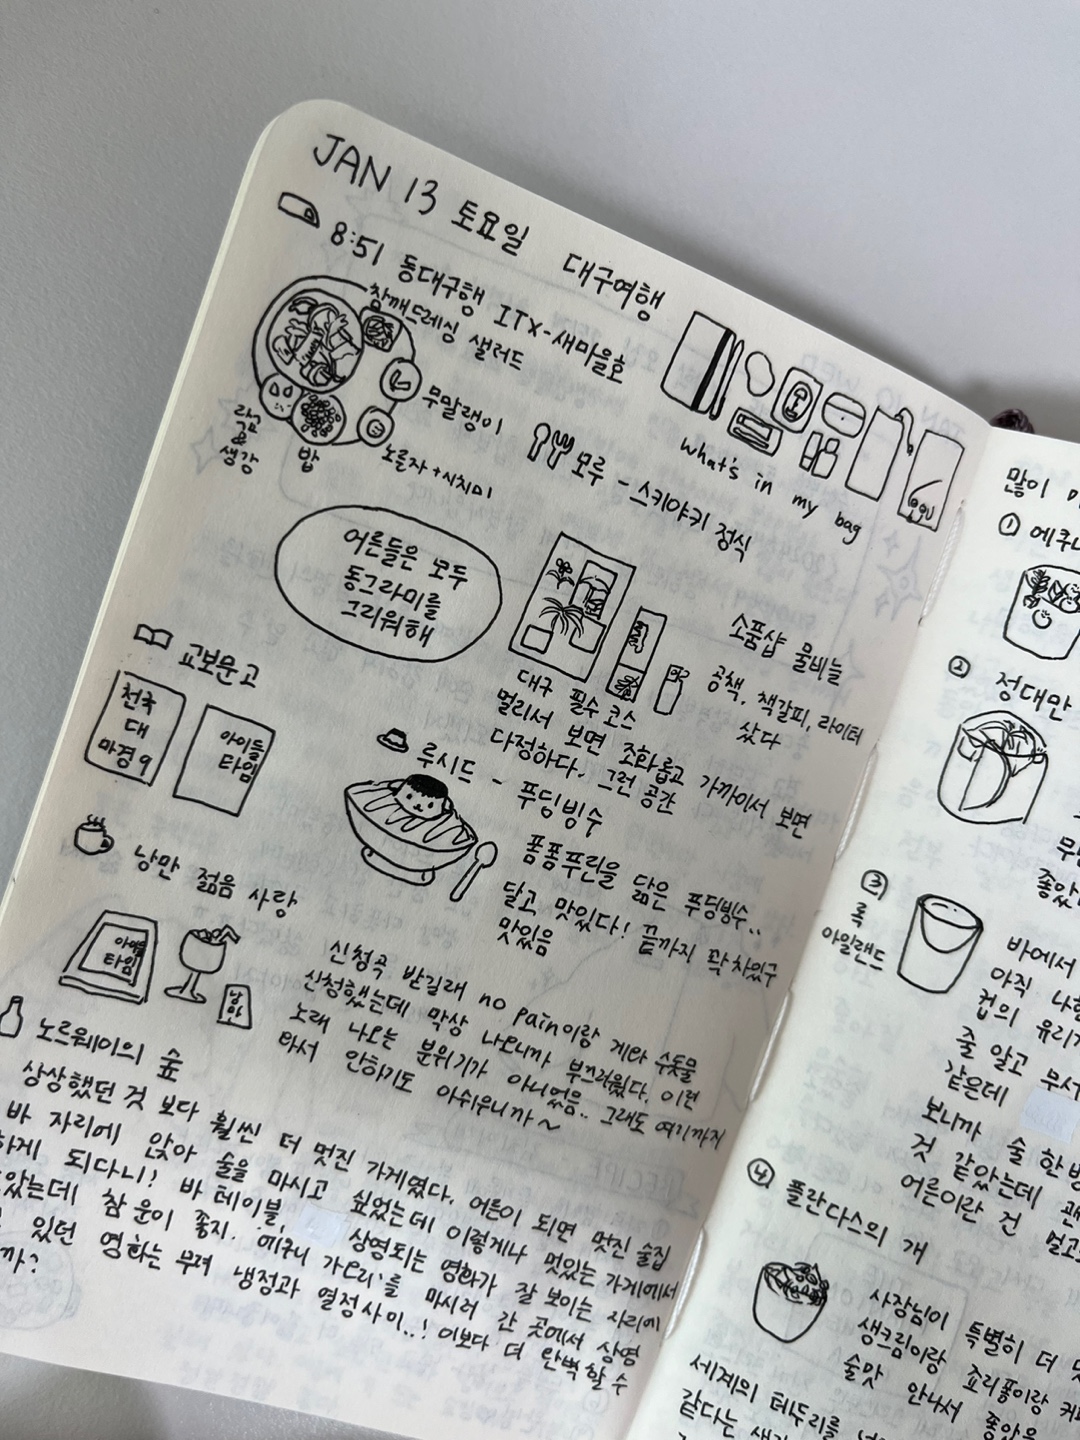 JAN 13 토요일 대구여행
8:51 동대구행 ITX-새마을호
참깨드레싱 샐러드
무말랭이
락교
&
생강
밥
노른자+시치미
what's in my bag
모루 - 스키야키 정식
어른들은 모두
동그라미를
그리워해
소품샵 물비늘
공책, 책갈피, 라이터
샀다
대구 필수 코스
멀리서 보면 조화롭고 가까이서 보면
다정하다. 그런 공간
교보문고
천국
대
마경 9
아이들
타임
루시드 - 푸딩빙수
폼폼푸린을 닮은 푸딩빙수..
달고 맛있다! 끝까지 꽉차있구
맛있음
낭만 젊음 사랑
타임
낭만
신청곡 받길래 no pain이랑 게와 수돗물
신청했는데 막상 나오니까 부끄러웠다. 이런
노래 나오는 분위기가 아니었음.. 그래도 여기까지
와서 안하기도 아쉬우니까~
노르웨이의 숲
상상했던 것 보다 훨씬 더 멋진 가게였다. 어른이 되면 멋진 술집
바 자리에 앉아 술을 마시고 싶었는데 이렇게나 멋있는 가게에서
하게 되다니! 바 테이블, 상영되는 영화가 잘 보이는 자리에
앉았는데 참 운이 좋지. '에쿠니 가오리'를 마시러 간 곳에서 상영
있던 영화는 무려 냉정과 열정사이..! 이보다 더 완벽할 수
까?
많이
① 에쿠니
② 정대만
좋았
③
록
아일랜드
바에서
아직
컵의 유리
줄 알고 무서
같은데
보니까 술 한방
것 같았는데 괜
어른이란 건 멀고
④ 플란다스의 개
사장님이 특별히 더
생크림이랑 죠리퐁이랑 커
술맛 안나서 좋았음
세계의 테두리를
같다는 생각